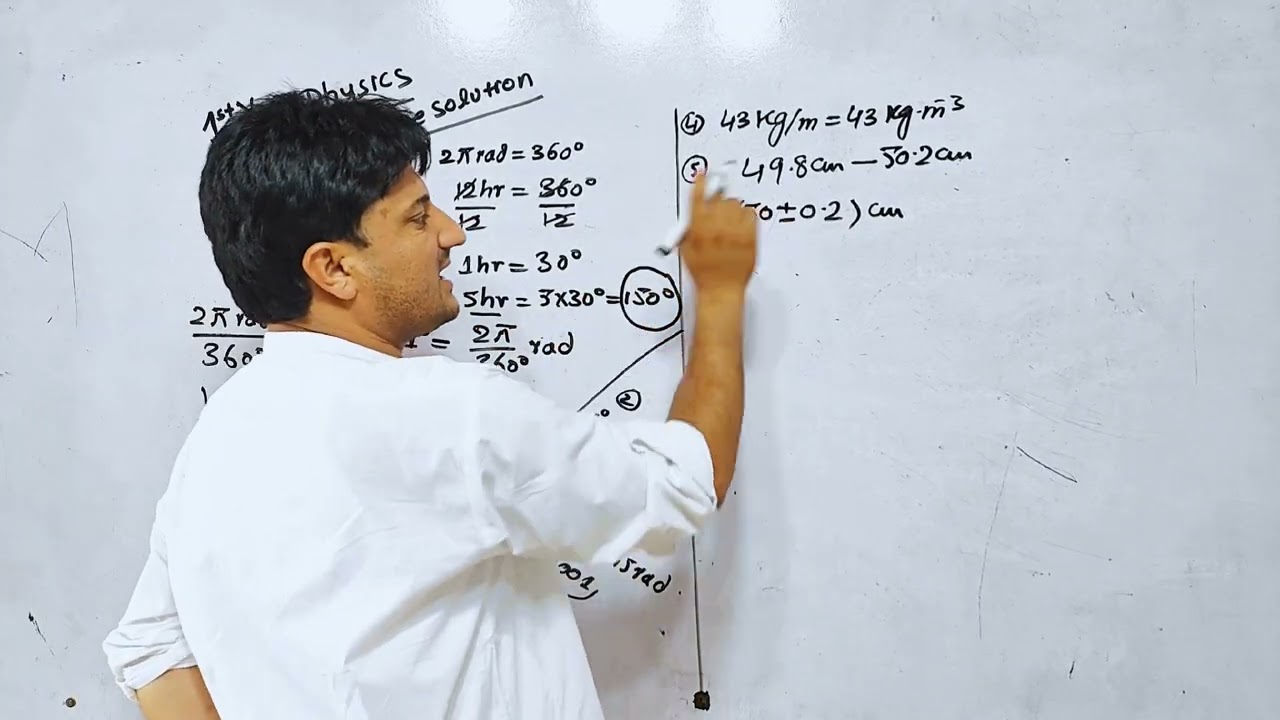 1st Physics
solution
2π rad = 360°
12hr/12 = 360°/12
1hr = 30°
5hr = 3×30° = 150°
2π/360° = 2π/360° rad
②
15rad
④ 43 Kg/m = 43 kg·m̄³
⑤ 49.8cm – 50.2cm
50 ± 0.2) cm